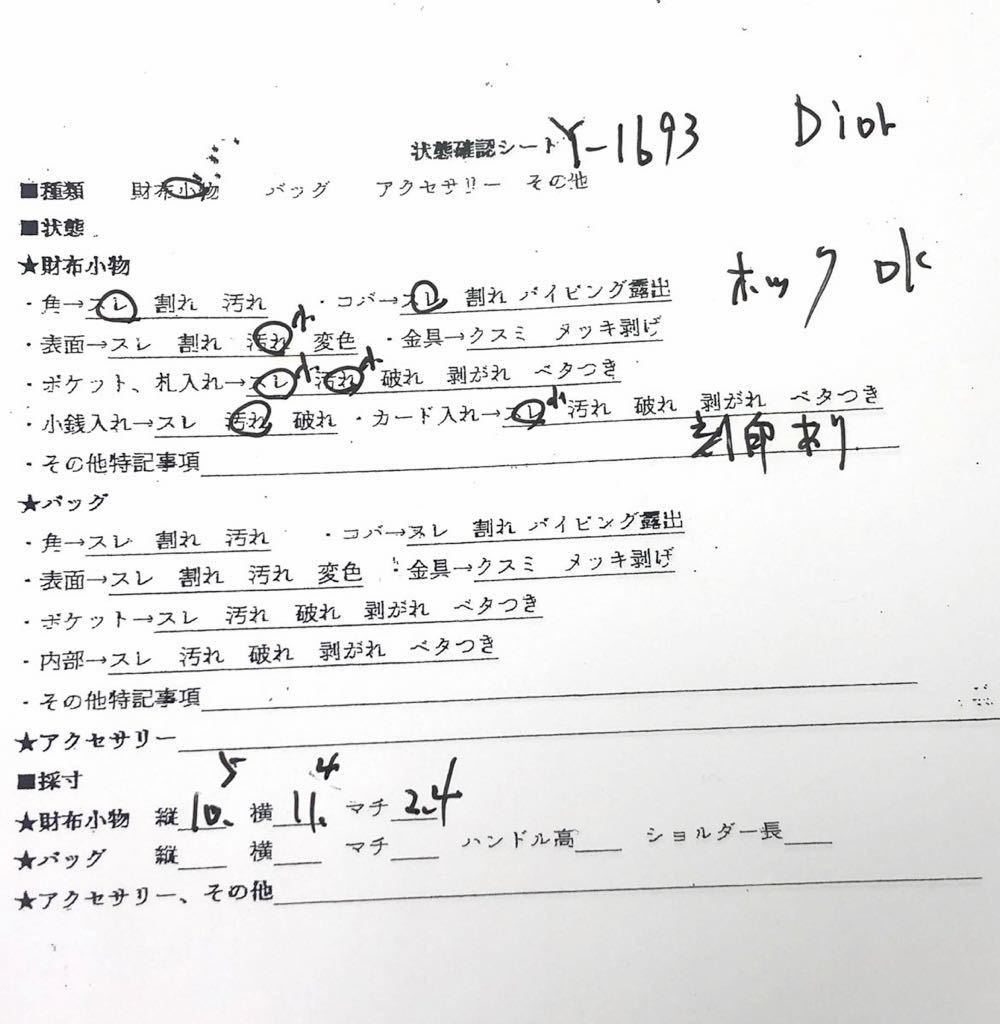 状態確認シート Y-1693 Dior
■種類 財布小物 バッグ アクセサリー その他
■状態
★財布小物
ホック OK
・角→スレ 割れ 汚れ ・コバ→スレ 割れ パイピング露出
・表面→スレ 割れ 汚れ小 変色 ・金具→クスミ メッキ剥げ
・ポケット、札入れ→スレ小 汚れ小 破れ 剥がれ ベタつき
・小銭入れ→スレ 汚れ 破れ ・カード入れ→スレ小 汚れ 破れ 剥がれ ベタつき
・その他特記事項 刻印あり
★バッグ
・角→スレ 割れ 汚れ ・コバ→スレ 割れ パイピング露出
・表面→スレ 割れ 汚れ 変色 ・金具→クスミ メッキ剥げ
・ポケット→スレ 汚れ 破れ 剥がれ ベタつき
・内部→スレ 汚れ 破れ 剥がれ ベタつき
・その他特記事項
★アクセサリー
■採寸
★財布小物 縦10.5 横11.4 マチ2.4
★バッグ 縦 横 マチ ハンドル高 ショルダー長
★アクセサリー、その他